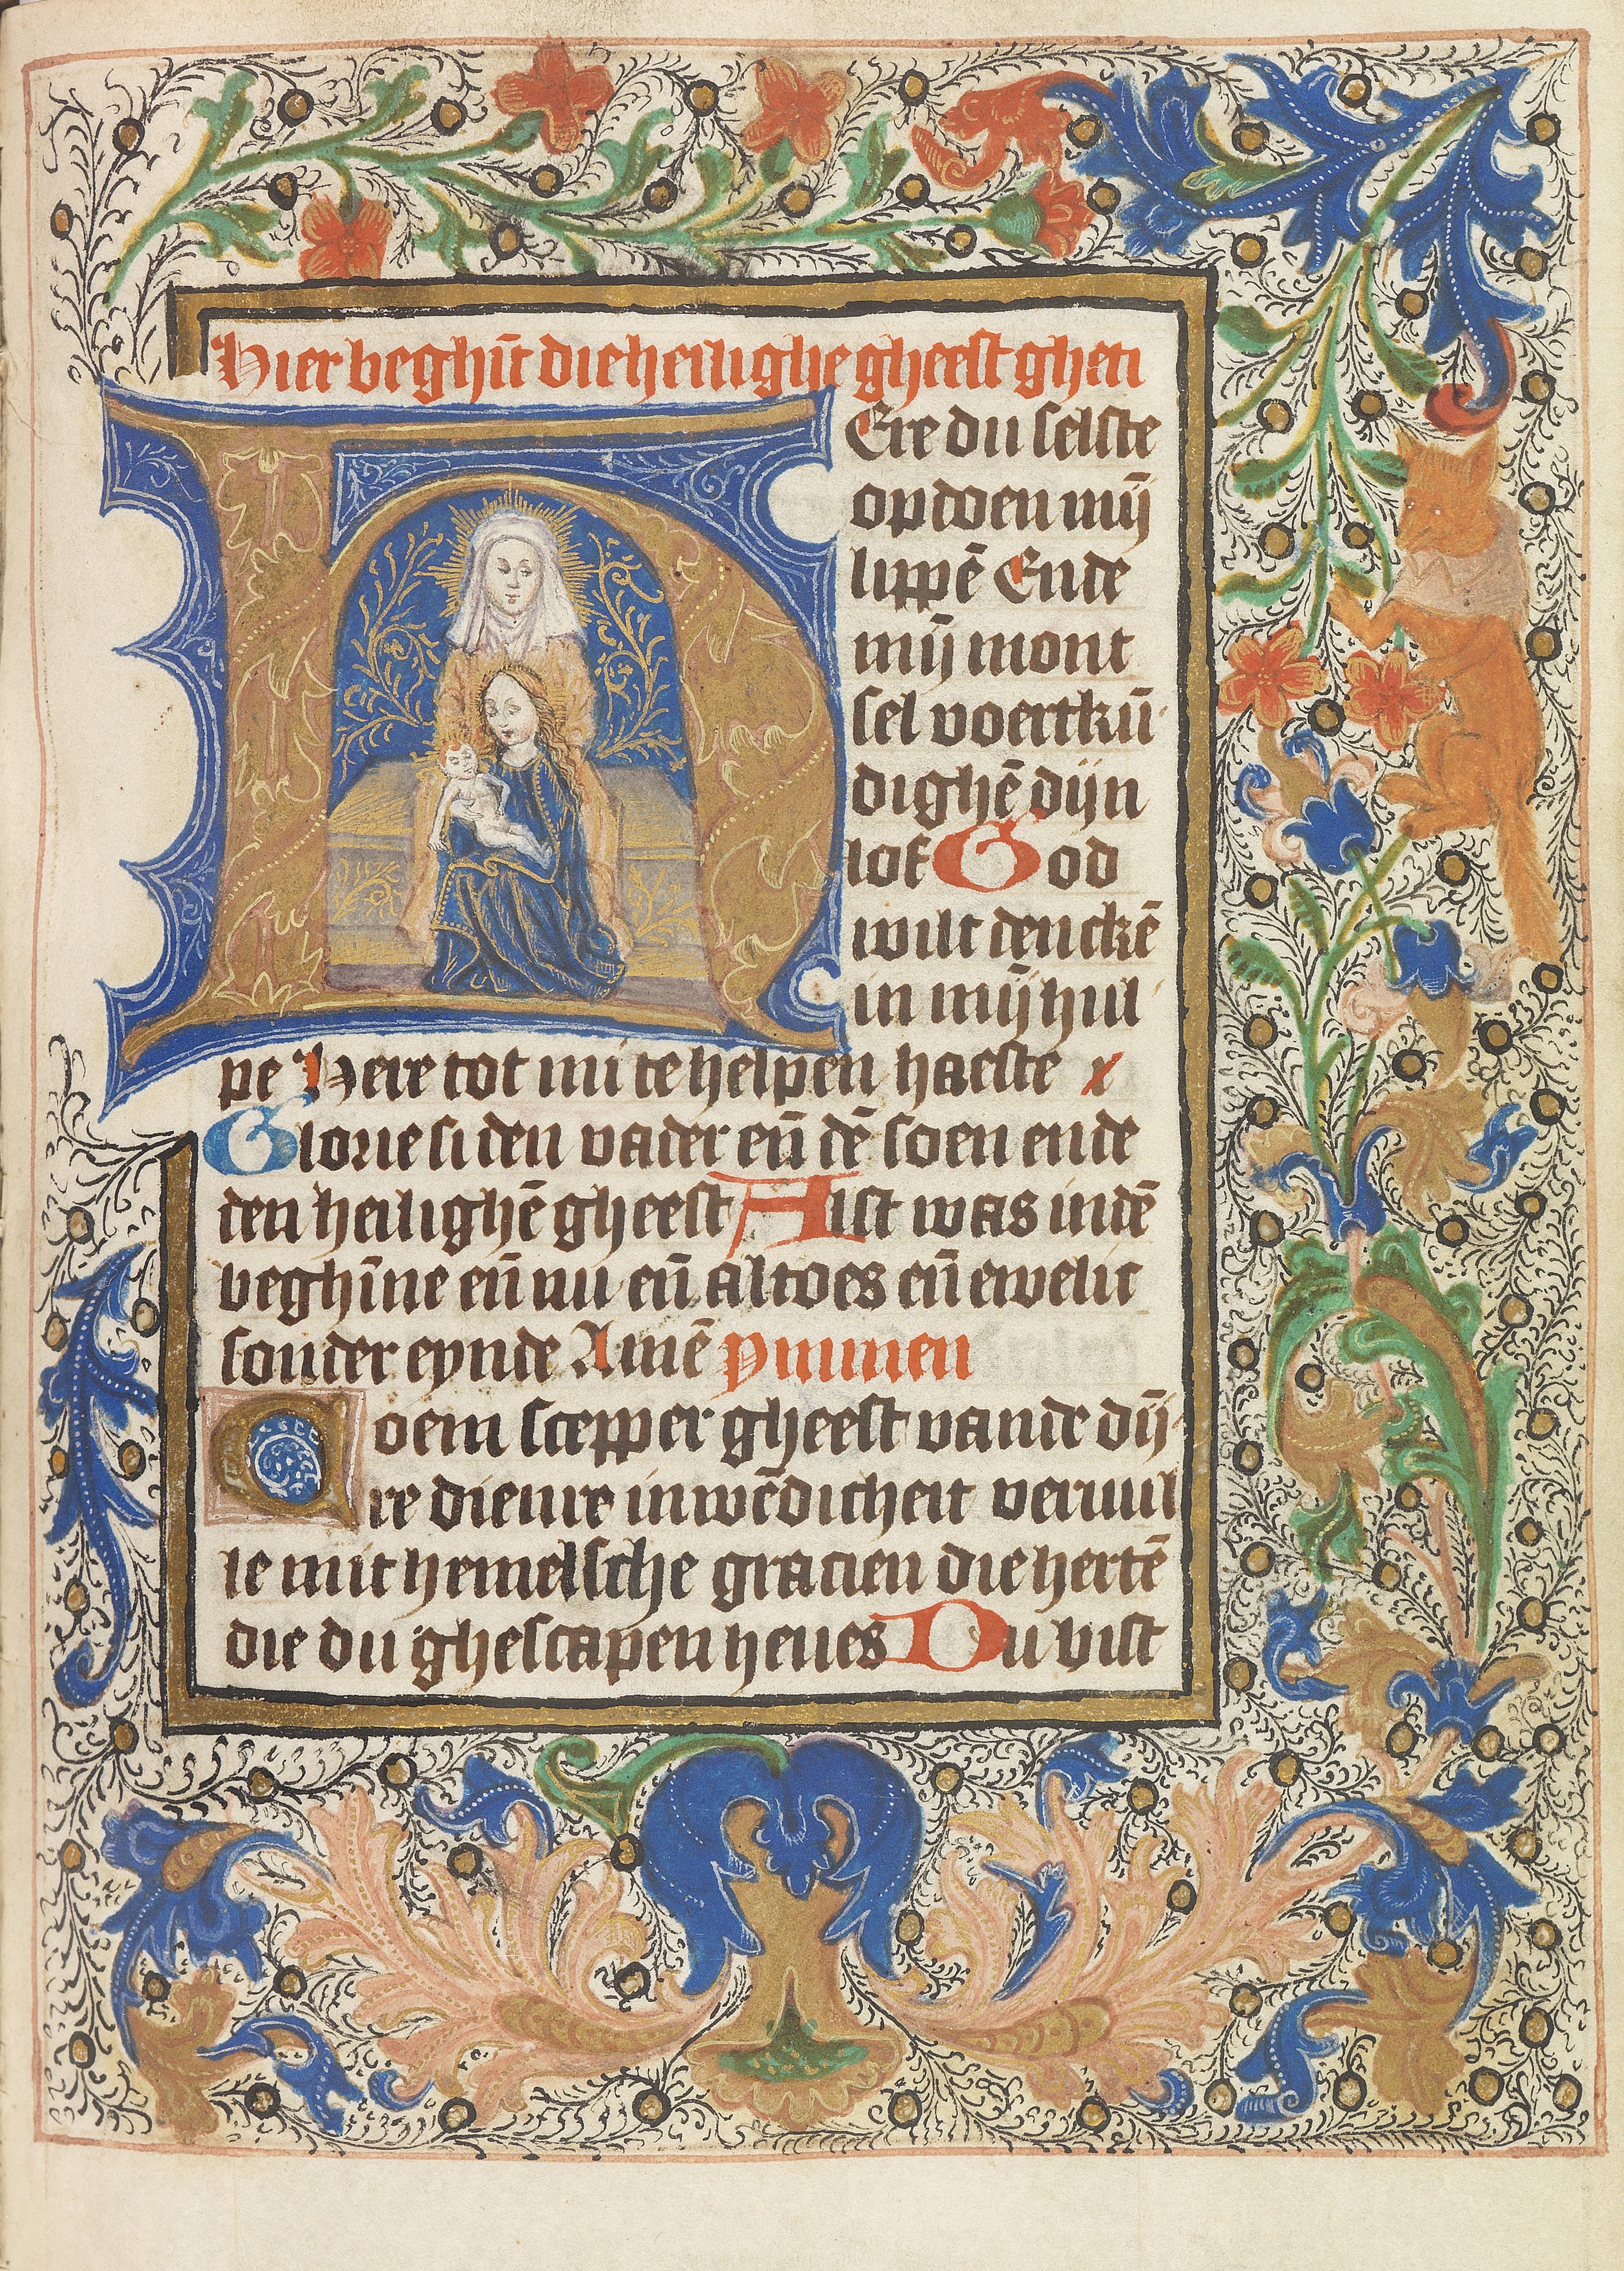 Hier beghīt die heilighe gheest gheti
HEre du selste
opdoen mīj
lippē Ende
mīj mont
sel voertkū
dighē dijn
lof God
wilt denckē
in mīj hul
pe Here tot mi te helpen haeste
Glorie si den vader eñ dē soen ende
den heilighē gheest Alst was indē
beghīne eñ nu eñ altoes eñ ewelic
sonder eynde Amē ymmen
Coem scepper gheest vande dij
re dienre inwēdicheit vervul
le mit hemelsche gracien die hertē
die du ghescapen heues Du bist